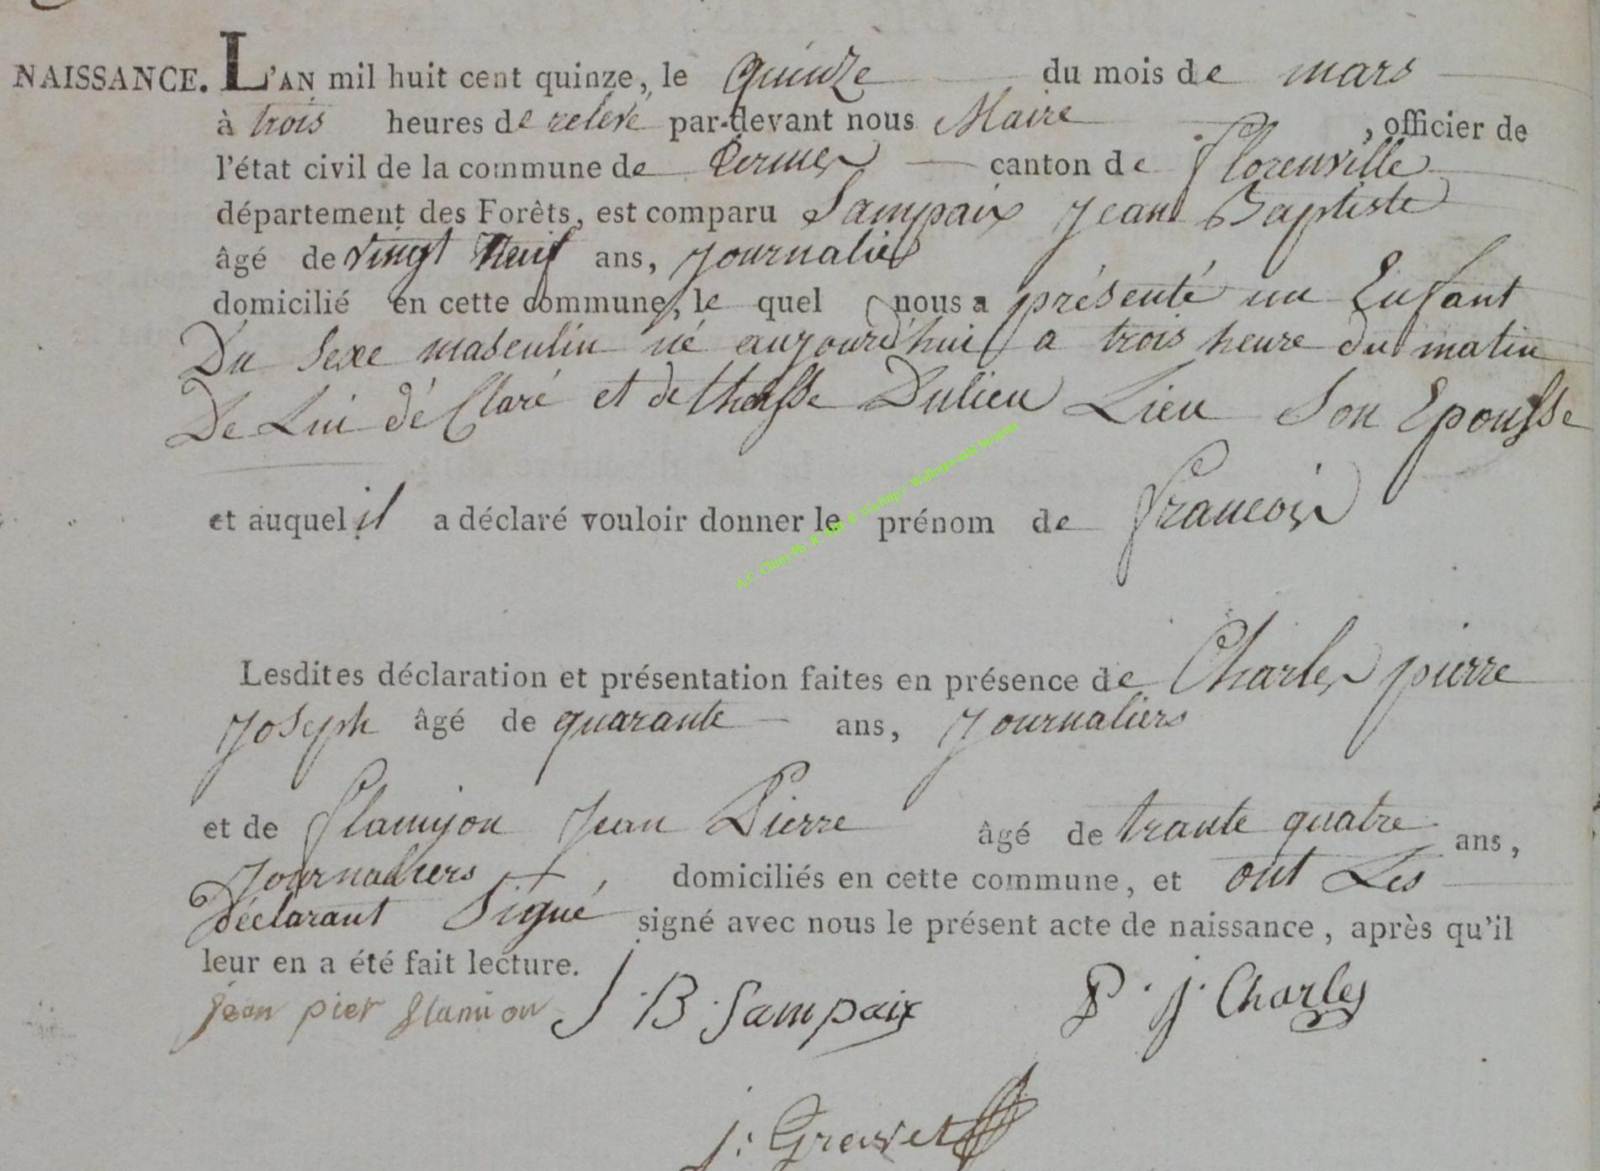 NAISSANCE. L'AN mil huit cent quinze, le quinze du mois de mars
à trois heures de relevé par-devant nous Maire , officier de
l'état civil de la commune de termes canton de florenville
département des Forêts, est comparu Sampaix Jean Baptiste
âgé de vingt neuf ans, journalier
domicilié en cette commune, le quel nous a présenté un Enfant
Du Sexe masculin né aujourd'hui a trois heure du matin
De Lui déClaré et de Dulieu Lieu Son Epousse
et auquel il a déclaré vouloir donner le prénom de francois
Lesdites déclaration et présentation faites en présence de Charles pierre
Joseph âgé de quarante ans, journaliers
et de flamijon Jean Pierre âgé de trante quatre ans,
journaliers , domiciliés en cette commune, et ont Les
Déclarant Signé signé avec nous le présent acte de naissance, après qu'il
leur en a été fait lecture.
jean pier flamion J. B. Sampaix P. J. Charles
j. Grevet